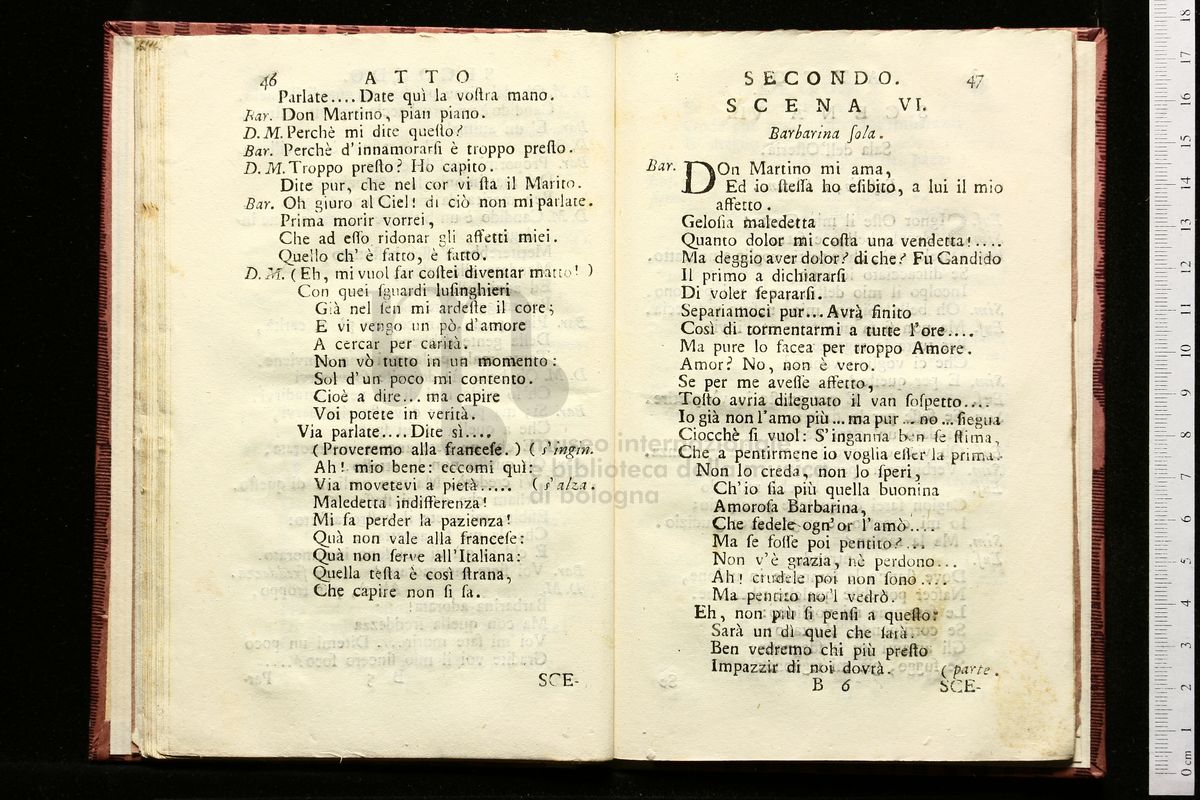 46
ATTO
Parlate.... Date quì la voſtra mano.
Bar. Don Martino, pian piano.
D. M. Perchè mi dite queſto?
Bar. Perchè d'innamorarſi è troppo preſto.
D. M. Troppo preſto? Ho capito.
Dite pur, che nel cor vi ſta il Marito.
Bar. Oh giuro al Ciel! di ciò non mi parlate.
Prima morir vorrei,
Che ad eſſo ridonar gli affetti miei.
Quello ch' è fatto, è fatto.
D. M. (Eh, mi vuol far coſtei diventar matto! )
Con quei ſguardi luſinghieri
Già nel ſen mi ardeſte il core;
E vi vengo un pò d'amore
A cercar per carità.
Non vò tutto in un momento:
Sol d'un poco mi contento.
Cioè a dire... ma capire
Voi potete in verità.
Via parlate.... Dite sì....
(Proveremo alla franceſe. ) ( s'ingin.
Ah! mio bene: eccomi quì:
Via movetevi a pietà..... ( s'alza.
Maledetta indifferenza!
Mi fa perder la pazienza!
Quà non vale alla franceſe:
Quà non ſerve all'Italiana:
Queſta teſta è così ſtrana,
Che capire non ſi ſa.
SCE-
SECONDO.
47
SCENA VI.
Barbarina ſola.
Bar. DOn Martino mi ama,
Ed io ſteſſa ho eſibito, a lui il mio
affetto.
Geloſia maledetta
Quanto dolor mi coſta una vendetta!....
Ma deggio aver dolor? di che? Fu Candido
Il primo a dichiararſi
Di voler ſepararſi.
Separiamoci pur... Avrà finito
Così di tormentarmi a tutte l'ore....
Ma pure lo facea per troppo Amore.
Amor? No, non è vero.
Se per me aveſſe affetto,
Toſto avria dileguato il van ſoſpetto....
Io già non l'amo più ... ma pur ... no ... ſiegua
Ciocchè ſi vuol: S'inganna ben ſe ſtima,
Che a pentirmene io voglia eſſer la prima.
Non lo creda, non lo ſperi,
Ch'io ſia più quella buonina
Amoroſa Barbarina,
Che fedele ogn'or l'amò....
Ma ſe foſſe poi pentito?...
Non v'è grazia, nè perdono...
Ah! crudele poi non ſono....
Ma pentito no'l vedrò.
Eh, non più ſi penſi a queſto:
Sarà un dì quel che ſarà.
Ben vedremo chi più preſto
Impazzir di noi dovrà. (parte.
B 6
SCE-
museo internazionale
e biblioteca della
di bologna